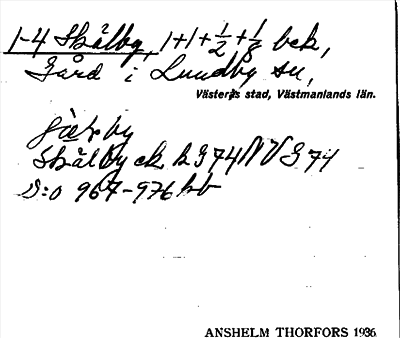 1-4 Skälby, 1+1+½+⅛ bck,
Gård i Lundby sn,
Västerås stad, Västmanlands län.
Skälby ek h 3 74 NV 3 74
S:o 967-976 bb
ANSHELM THORFORS 1936